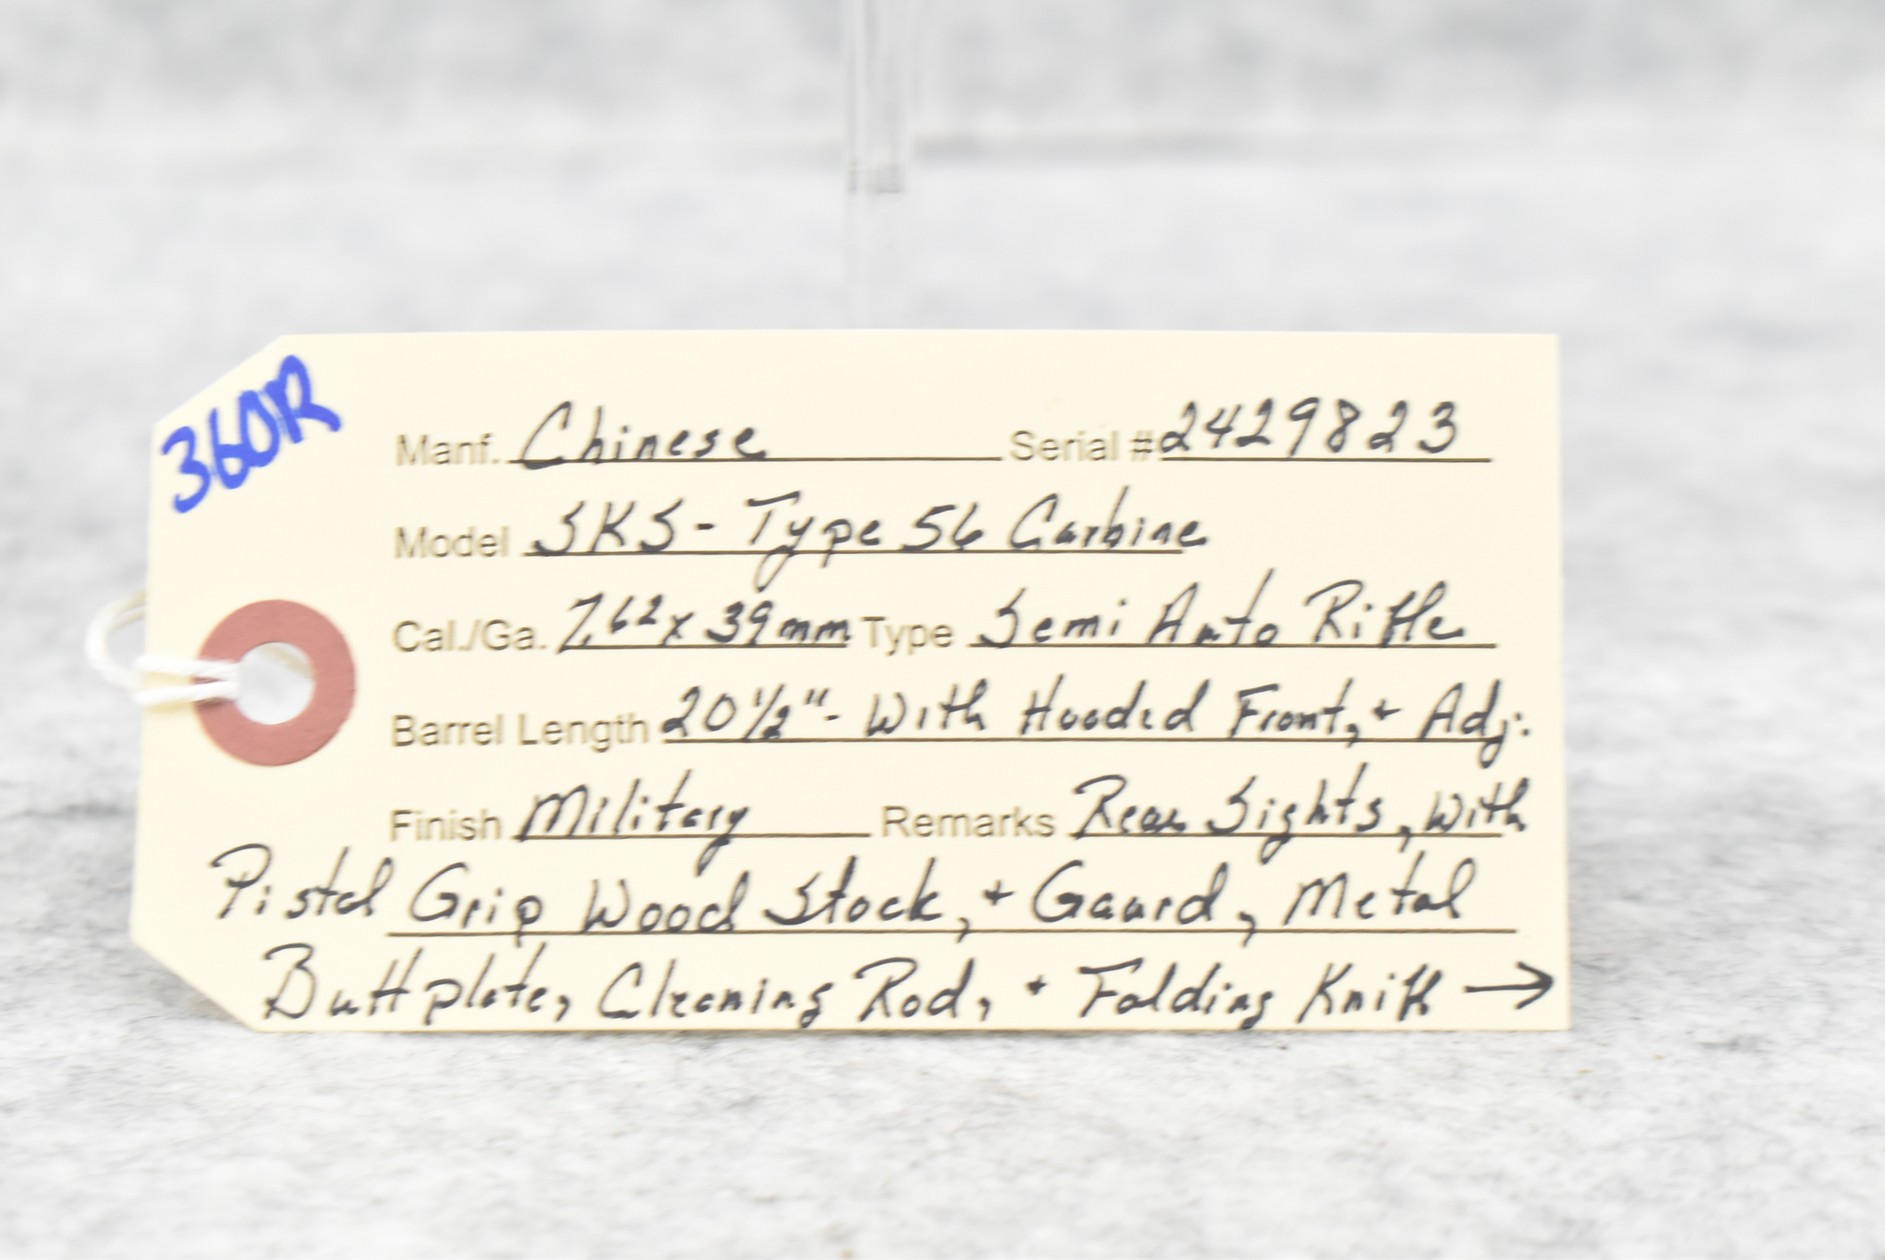 360R
Manf. Chinese Serial # 2429823
Model SKS - Type 56 Carbine
Cal./Ga. 7.62 x 39mm Type Semi Auto Rifle
Barrel Length 20 1/2" - With Hooded Front, + Adj.
Finish Military Remarks Rear Sights, With
Pistol Grip Wood Stock, + Gaurd, Metal
Buttplate, Cleaning Rod, + Folding Knife →